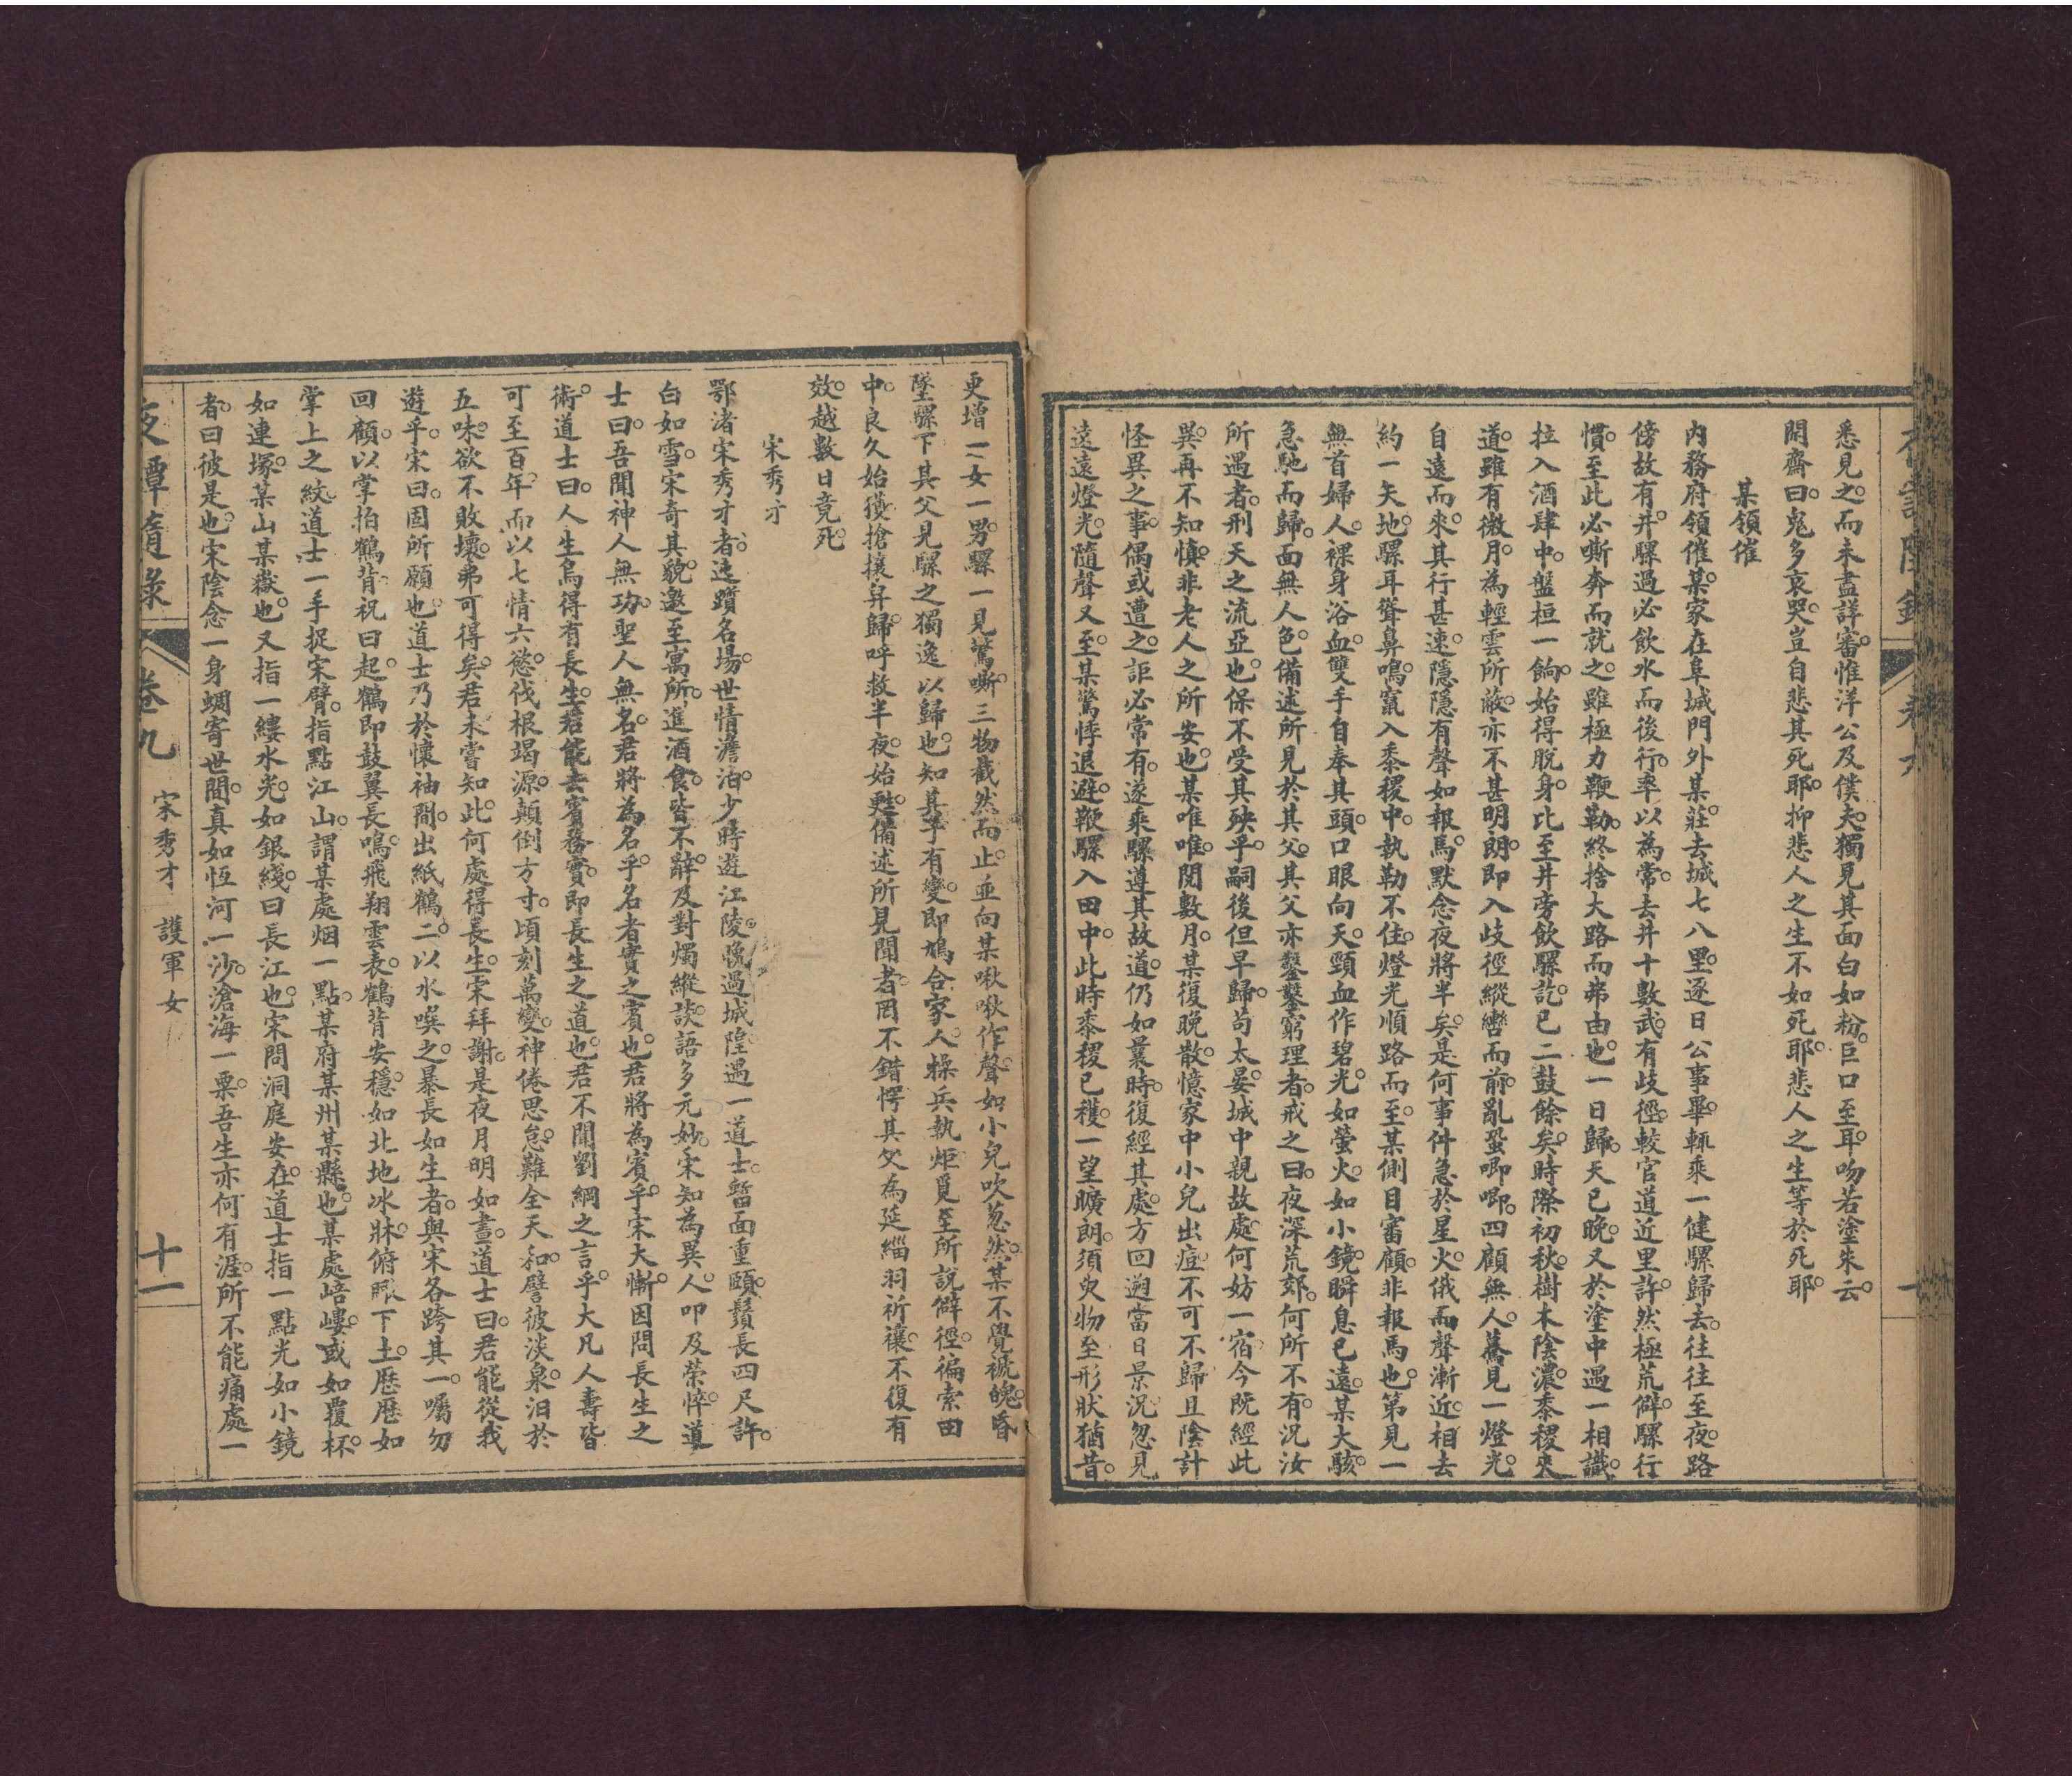 悉見之。而未盡詳審。惟洋公及僕夫。獨見其面白如粉。巨口至耳。吻若塗朱云。
閑齋曰。鬼多哀哭。豈自悲其死耶。抑悲人之生不如死耶。悲人之生等於死耶。
某領催
內務府領催某。家在阜城門外某莊。去城七八里。逐日公事畢。輒乘一健騾歸去。往往至夜。路
傍故有井。騾過必飲水而後行。率以為常。去井十數武。有歧徑。較官道近里許。然極荒僻。騾行
慣。至此必嘶奔而就之。雖極力鞭勒。終捨大路而弗由也。一日歸。天已晚。又於塗中遇一相識。
拉入酒肆中。盤桓一餉。始得脫身。比至井旁飲騾訖。已二鼓餘矣。時際初秋。樹木陰濃。黍稷夾
道。雖有微月。為輕雲所蔽。亦不甚明朗。即入歧徑。縱轡而前。亂蛩唧唧。四顧無人。驀見一燈光。
自遠而來。其行甚速。隱隱有聲如報馬。默念夜將半矣。是何事件急於星火。俄而聲漸近。相去
約一矢地。騾耳聳鼻鳴。竄入黍稷中。執勒不住。燈光順路而至。某側目審顧。非報馬也。第見一
無首婦人。裸身浴血。雙手自奉其頭。口眼向天。頸血作碧光。如螢火。如小鏡。瞬息已遠。某大駭。
急馳而歸。面無人色。備述所見於其父。其父亦鑿鑿窮理者。戒之曰。夜深荒郊。何所不有。況汝
所遇者。刑天之流亞也。保不受其殃乎。嗣後但早歸。苟太晏。城中親故處。何妨一宿。今既經此
異。再不知慎。非老人之所安也。某唯唯。閱數月。某復晚散。憶家中小兒出痘。不可不歸。且陰計
怪異之事。偶或遭之。詎必常有。遂乘騾遵其故道。仍如曩時。復經其處。方回遡當日景況。忽見
遠遠燈光。隨聲又至。某驚悸退避。鞭騾入田中。此時黍稷已穫。一望曠朗。須臾物至。形狀猶昔。
更增一女一男。騾一見驚嘶。三物截然而止。並向某啾啾作聲。如小兒吹葱然。某不覺褫魄。昏
墜騾下。其父見騾之獨逸以歸也。知其子有變。即鳩合家人。操兵執炬。覓至所說僻徑。徧索田
中。良久始獲。搶攘舁歸。呼救半夜。始甦。備述所見。聞者罔不錯愕。其父為延緇羽祈禳。不復有
效。越數日竟死。
宋秀才
鄂渚宋秀才者。迭躓名場。世情澹泊。少時遊江陵。晚過城隍。遇一道士。皙面重頤。鬚長四尺許。
白如雪。宋奇其貌。邀至寓所。進酒食。皆不辭。及對燭縱談。語多元妙。宋知為異人。叩及榮悴。道
士曰。吾聞神人無功。聖人無名。君將為名乎。名者實之賓也。君將為賓乎。宋大慚。因問長生之
術。道士曰。人生烏得有長生。若能去賓務實。即長生之道也。君不聞劉綱之言乎。大凡人壽皆
可至百年。而以七情六慾。伐根竭源。顛倒方寸。頃刻萬變。神倦思怠。難全天和。譬彼淡泉。汩於
五味。欲不敗壞。弗可得矣。君未嘗知此。何處得長生。宋拜謝。是夜月明如晝。道士曰。君能從我
遊乎。宋曰。固所願也。道士乃於懷袖間。出紙鶴二。以水噀之。暴長如生者。與宋各跨其一。囑勿
回顧。以掌拍鶴背。祝曰起。鶴即鼓翼長鳴。飛翔雲表。鶴背安穩。如北地冰牀。俯眎下土。歷歷如
掌上之紋。道士一手捉宋臂。指點江山。謂某處烟一點。某府某州某縣也。某處嵱嶁。或如覆杯。
如連塚。某山某嶽也。又指一縷水光。如銀綫。曰長江也。宋問洞庭安在。道士指一點光如小鏡
者。曰彼是也。宋陰念一身蜩寄世間。真如恆河一沙。滄海一粟。吾生亦何有涯。所不能痛處一
夜譚隨錄
卷九
宋秀才
護軍女
十一